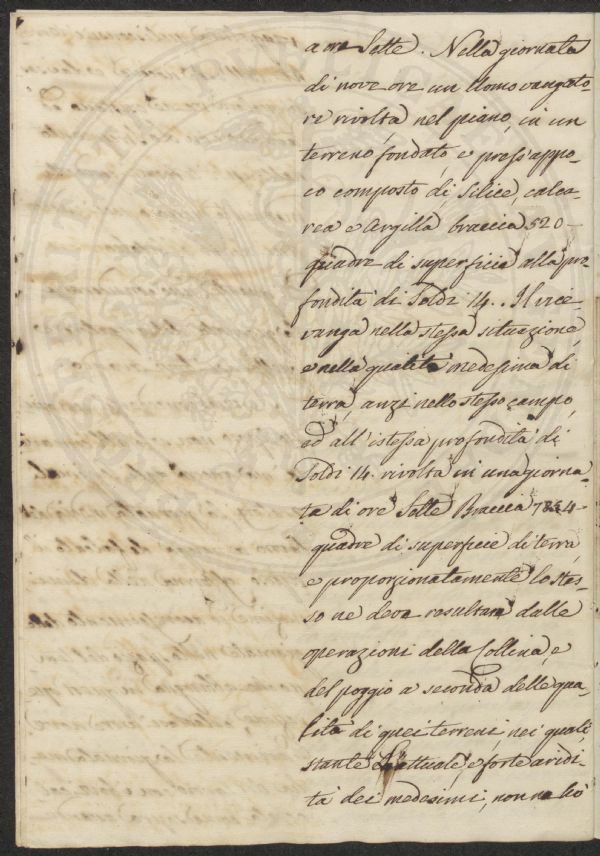 a ore Sette. Nella giornata
di nove ore un Uomo vangato-
re rivolta nel piano, in un
terreno fondato, e press'appo-
co composto di Silice, calca-
rea e Argilla braccia 520-
quadre di superficie alla pro-
fondità di Soldi 14. Il vice-
vanga nella stessa situazione,
e nella qualità medesima di
terra, anzi nello stesso campo,
ed all'istessa profondità di
Soldi 14. rivolta in una giorna-
ta di ore Sette Braccia
quadre di superficie di terra,
e proporzionatamente lo stes-
so ne deve resultare dalle
operazioni della Collina, e
del poggio a seconda delle qua-
lità di quei terreni, nei quali,
stante l'attuale, e forte aridi-
tà dei medesimi, non ne hò